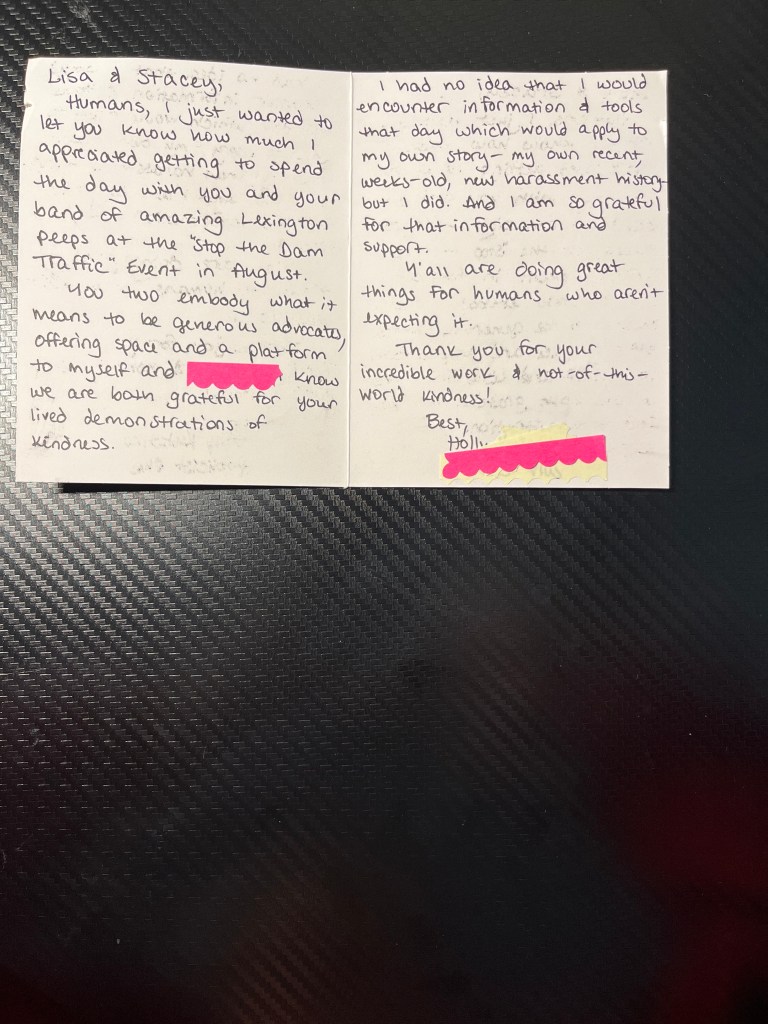 Lisa & Stacey,
Humans, I just wanted to
let you know how much I
appreciated getting to spend
the day with you and your
band of amazing Lexington
peeps at the "Stop the Dam
Traffic" Event in August.
You two embody what it
means to be generous advocates,
offering space and a platform
to myself and know
we are both grateful for your
lived demonstrations of
kindness.
I had no idea that I would
encounter information & tools
that day which would apply to
my own story- my own recent,
weeks-old, new harassment history-
but I did. And I am so grateful
for that information and
support.
Y'all are doing great
things for humans who aren't
expecting it.
Thank you for your
incredible work & not-of-this-
world kindness!
Best,